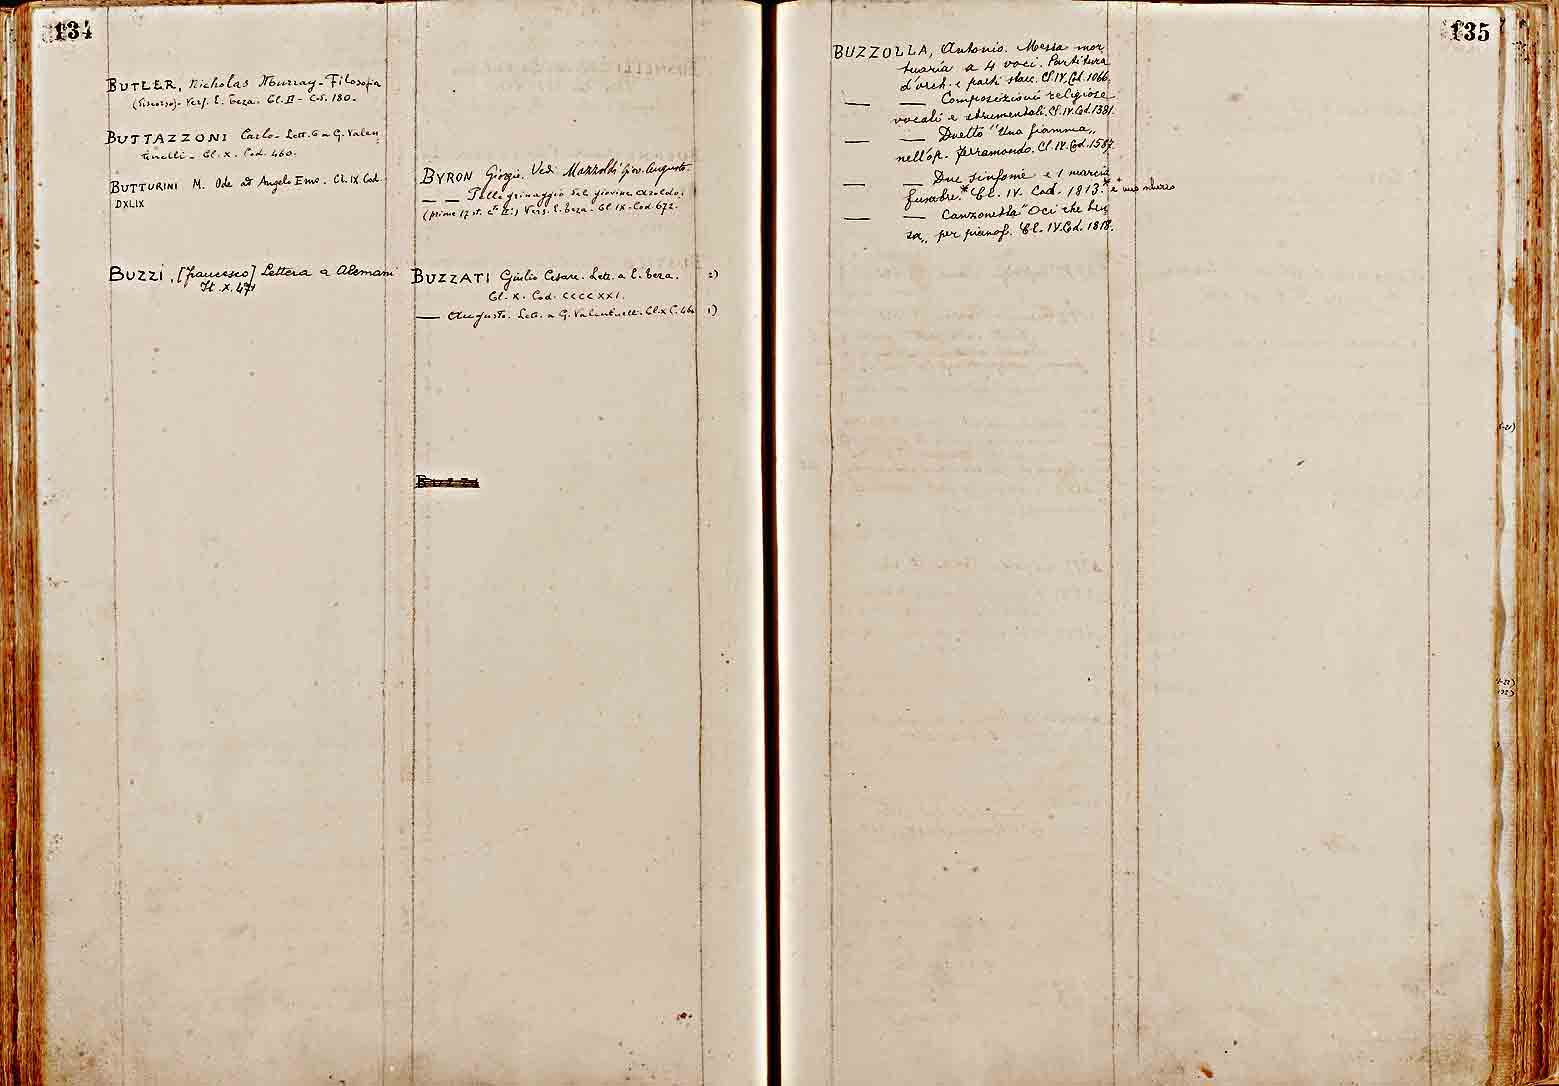 134
BUTLER, Nicholas Murray - Filosofia
(Discorso) - Vers. E. Teza. Cl. II - C. 180.
BUTTAZZONI Carlo - Lett. 6 a G. Valen
tinelli - Cl. X. Cod. 460.
BUTTURINI M. Ode ad Angelo Emo. Cl. IX. Cod
DXLIX
BUZZI, [francesco] Lettera a Alemani
It. X. 471
BYRON Giorgio. Vedi Mazzoldi Giov. Augusto.
— — Pellegrinaggio del giovine Aroldo.
(prime 17 st. Cto II:) Vers. E. Teza. Cl. IX - Cod. 672.
BUZZATI Giulio Cesare. Lett. a E. Teza. 2)
Cl. X. Cod. CCCCXXI.
— Augusto. Lett. a G. Valentinelli. Cl. X C. 460 1)
Buzzi
135
BUZZOLLA, Antonio. Messa mor
tuaria a 4 voci. Partitura
d'orch. e parti stacc. Cl. IV. Cod. 1066.
— — Composizioni religiose
vocali e strumentali. Cl. IV. Cod. 1381.
— — Duetto "Una fiamma„
nell'op. Ferramondo. Cl. IV. Cod. 1587.
— — Due sinfonie e 1 marcia
funebre.* Cl. IV. Cod. 1813.* e
— — Canzonetta "Oci che bru
sa„ per pianof. Cl. IV. Cod. 1818.